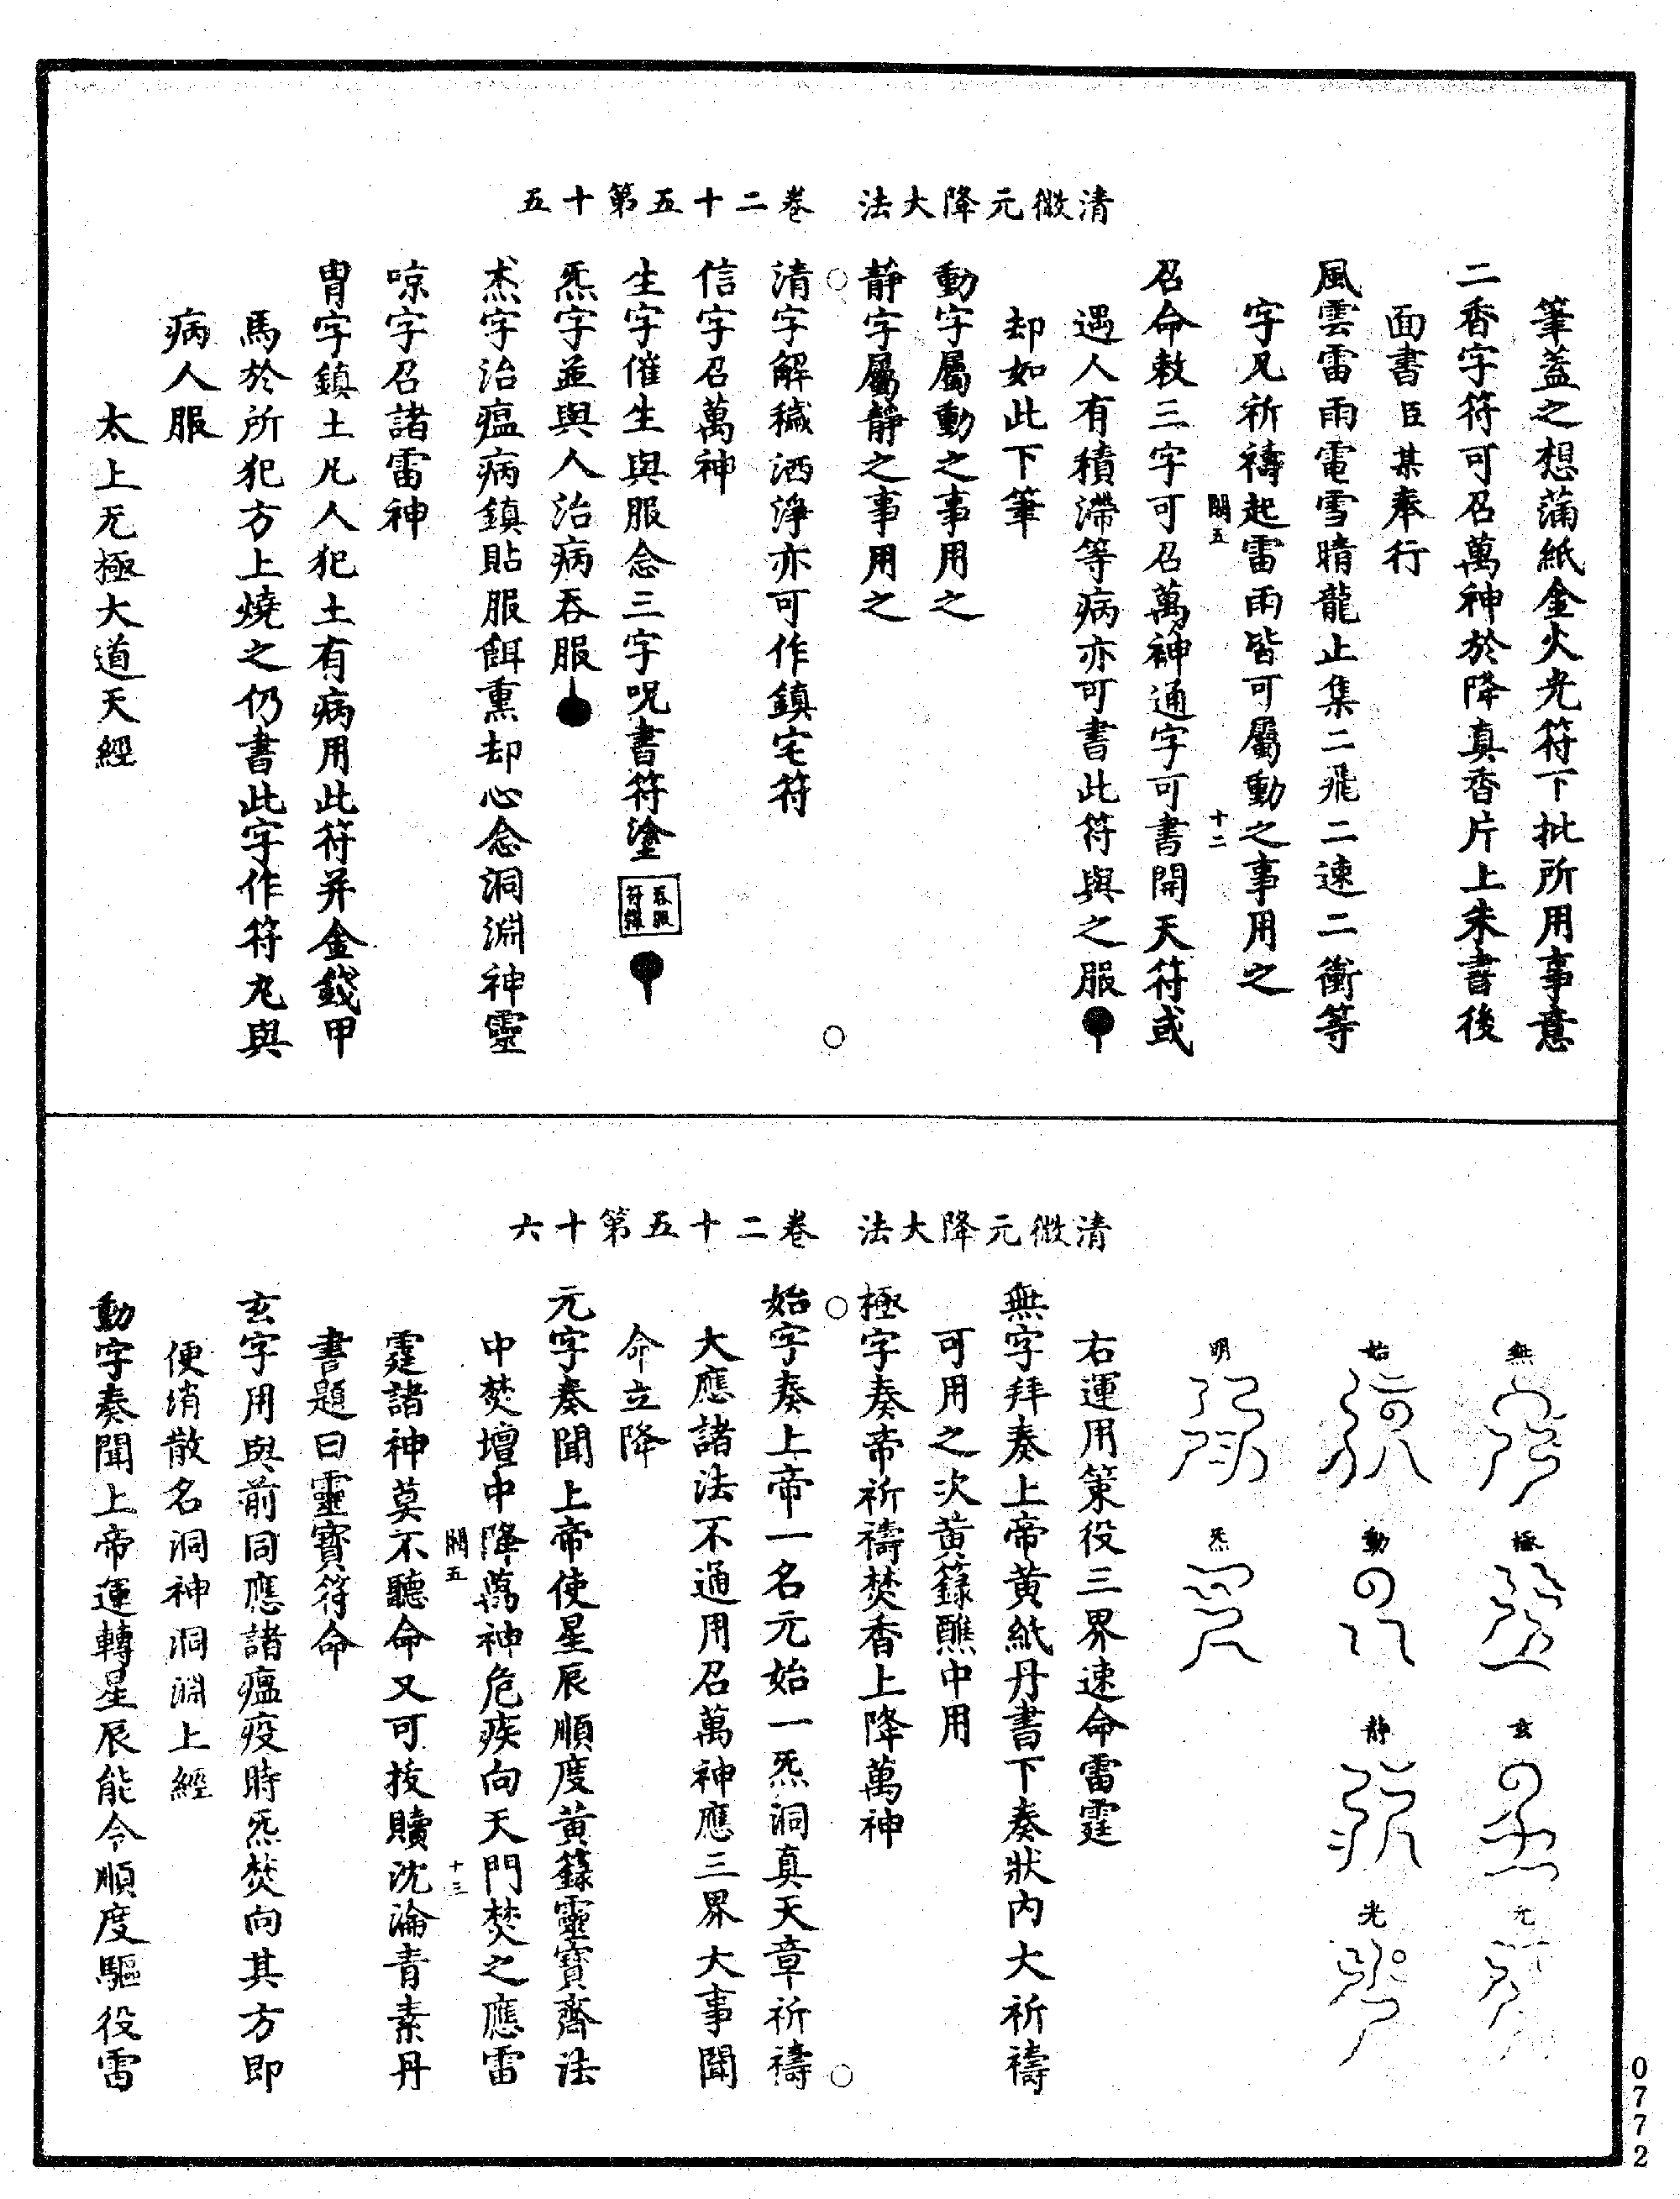 清微元降大法　卷二十五第十五
筆蓋之想蒲紙金火光符下批所用事意
二香字符可召萬神於降真香片上朱書後
面書臣某奉行
風雲雷雨電雪晴龍止集二飛二速二衝等
字凡祈禱起雷雨皆可屬動之事用之
明五　十二
召命敕三字可召萬神通字可書開天符或
遇人有積滯等病亦可書此符與之服
却如此下筆
動字屬動之事用之
靜字屬靜之事用之
清字解穢洒淨亦可作鎮宅符
信字召萬神
生字催生與服念三字呪書符塗
炁字並與人治病吞服
烝字治瘟病鎮貼服餌熏却心念洞淵神靈
㖫字召諸雷神
冑字鎮土凡人犯土有病用此符并金錢甲
馬於所犯方上燒之仍書此字作符丸與
病人服
太上无極大道天經
清微元降大法　卷二十五第十六
無　極　玄　元
始　動　靜　光
明　炁
右運用策役三界速命雷霆
無字拜奏上帝黃紙丹書下奏狀內大祈禱
可用之次黃籙醮中用
極字奏帝祈禱焚香上降萬神
始字奏上帝一名元始一炁洞真天章祈禱
大應諸法不通用召萬神應三界大事聞
命立降
元字奏聞上帝使星辰順度黃籙靈寶齋法
中焚壇中降萬神危疾向天門焚之應雷
明五　十三
霆諸神莫不聽命又可拔贖沈淪青素丹
書題曰靈寶符命
玄字用與前同應諸瘟疫時炁焚向其方即
便消散名洞神洞淵上經
動字奏聞上帝運轉星辰能令順度驅役雷
0772